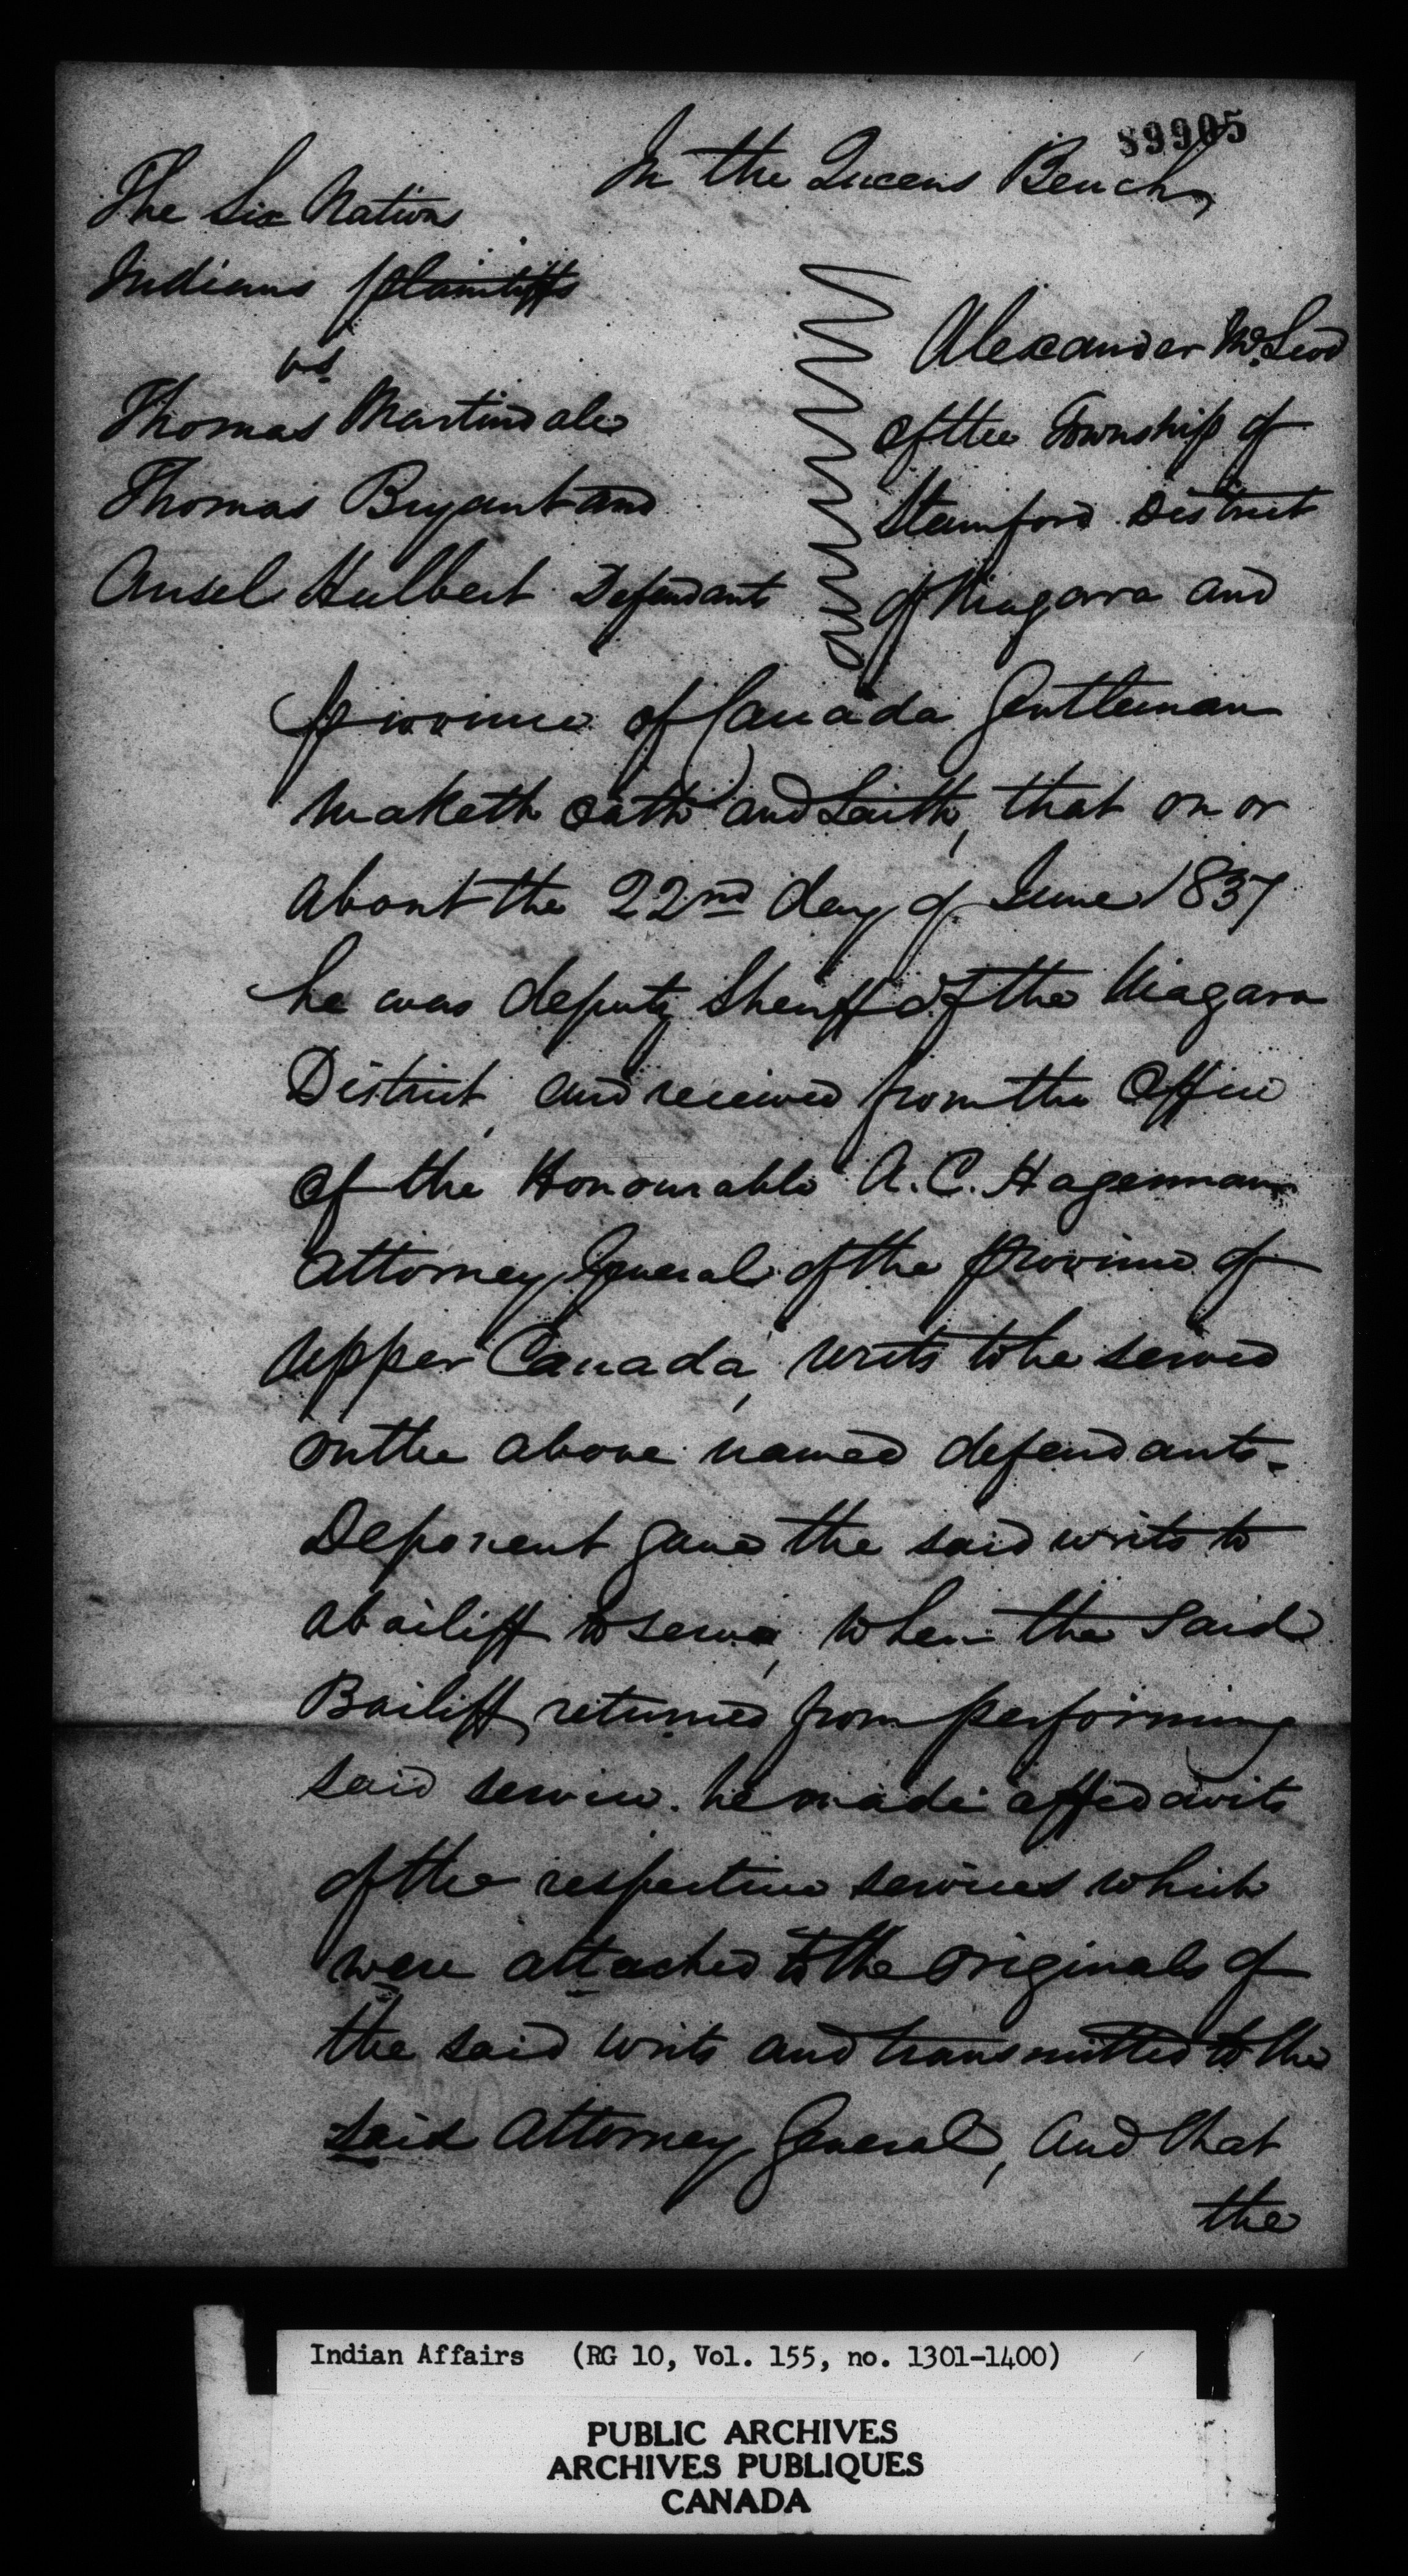 89905
In the Queens Bench,
The Six Nations
Indians plaintiffs
vs
Thomas Martindale
Thomas Bryant and
Ansel Hulbert Defendants
Alexander McLeod
of the Township of
Stamford District
of Niagara and
province of Canada Gentleman
maketh oath and Saith, that on or
about the 22nd day of June 1837
he was deputy Sheriff of the Niagara
District, and received from the Office
of the Honourable A. C. Hagerman
Attorney General of the province of
Upper Canada, writs to be served
on the above named defendants-
Deponent gave the said writs to
a bailiff to serve, when the Said
Bailiff returned from performing
said service. he made affidavits
of the respective services which
were attached to the originals of
the said writs and transmitted to the
said Attorney General, and that
the
Indian Affairs (RG 10, Vol. 155, no. 1301-1400)
PUBLIC ARCHIVES
ARCHIVES PUBLIQUES
CANADA